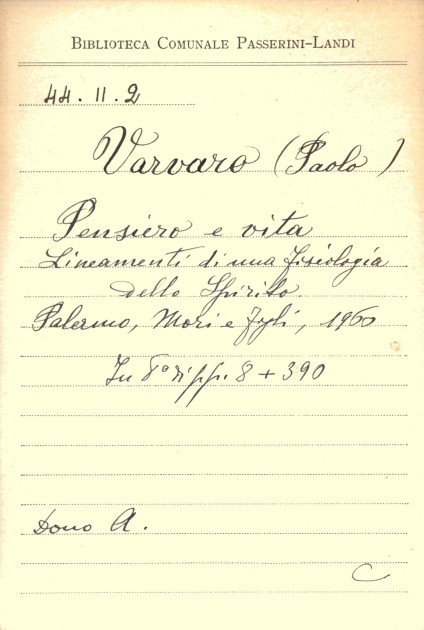 BIBLIOTECA COMUNALE PASSERINI-LANDI
44. II. 2
Varvaro (Paolo)
Pensiero e vita
Lineamenti di una fisiologia
dello Spirito.
Palermo, Mori e figli, 1960
In 8º di pp. 8 + 390
Dono A.
C